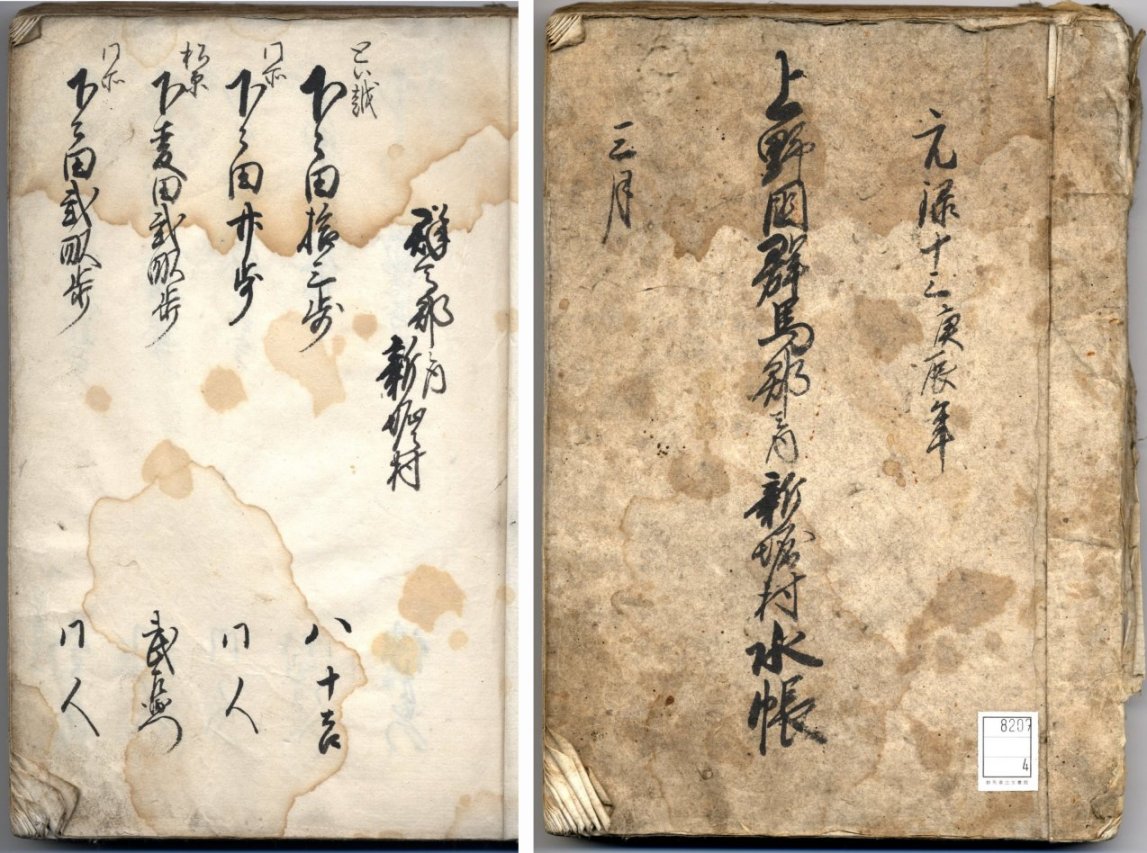 元禄十三庚辰年
上野国群馬郡之内新堀村水帳
三月
8207
4
群馬郡之内
新堀村
下々田拾三歩
八十吉
同所
下々田廿歩
同人
下麦田弐畝歩
同所
下々田弐畝歩
同人